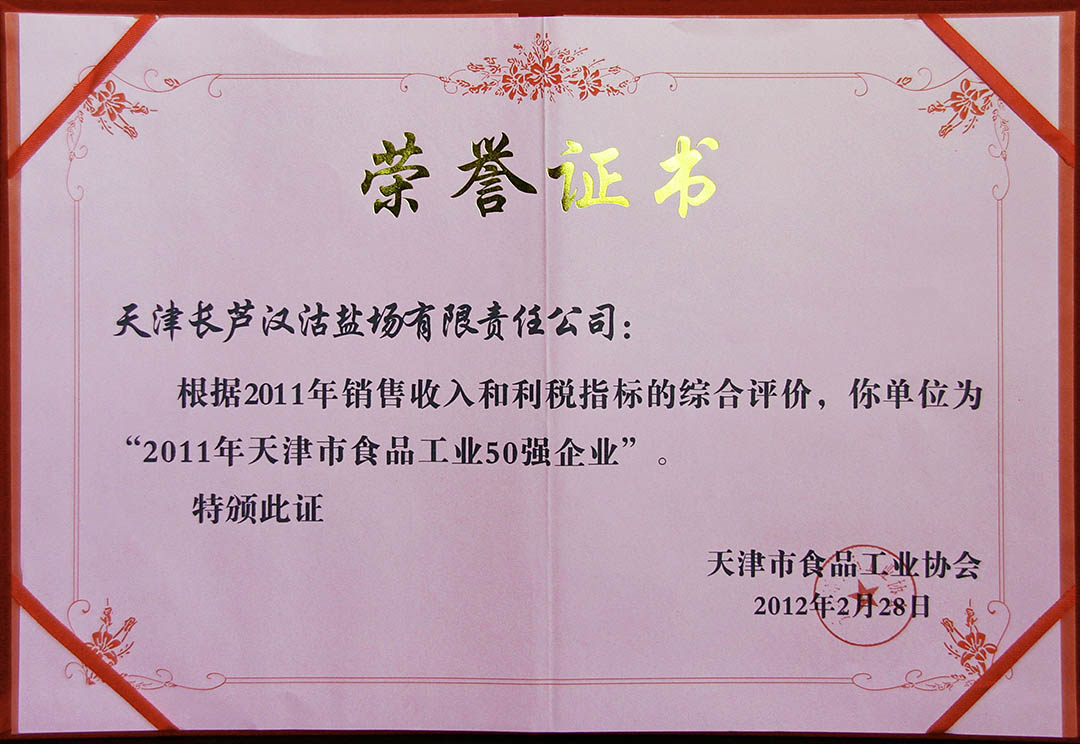 荣誉证书
天津长芦汉沽盐场有限责任公司：
根据2011年销售收入和利税指标的综合评价，你单位为
“2011年天津市食品工业50强企业”。
特颁此证
天津市食品工业协会
2012年2月28日